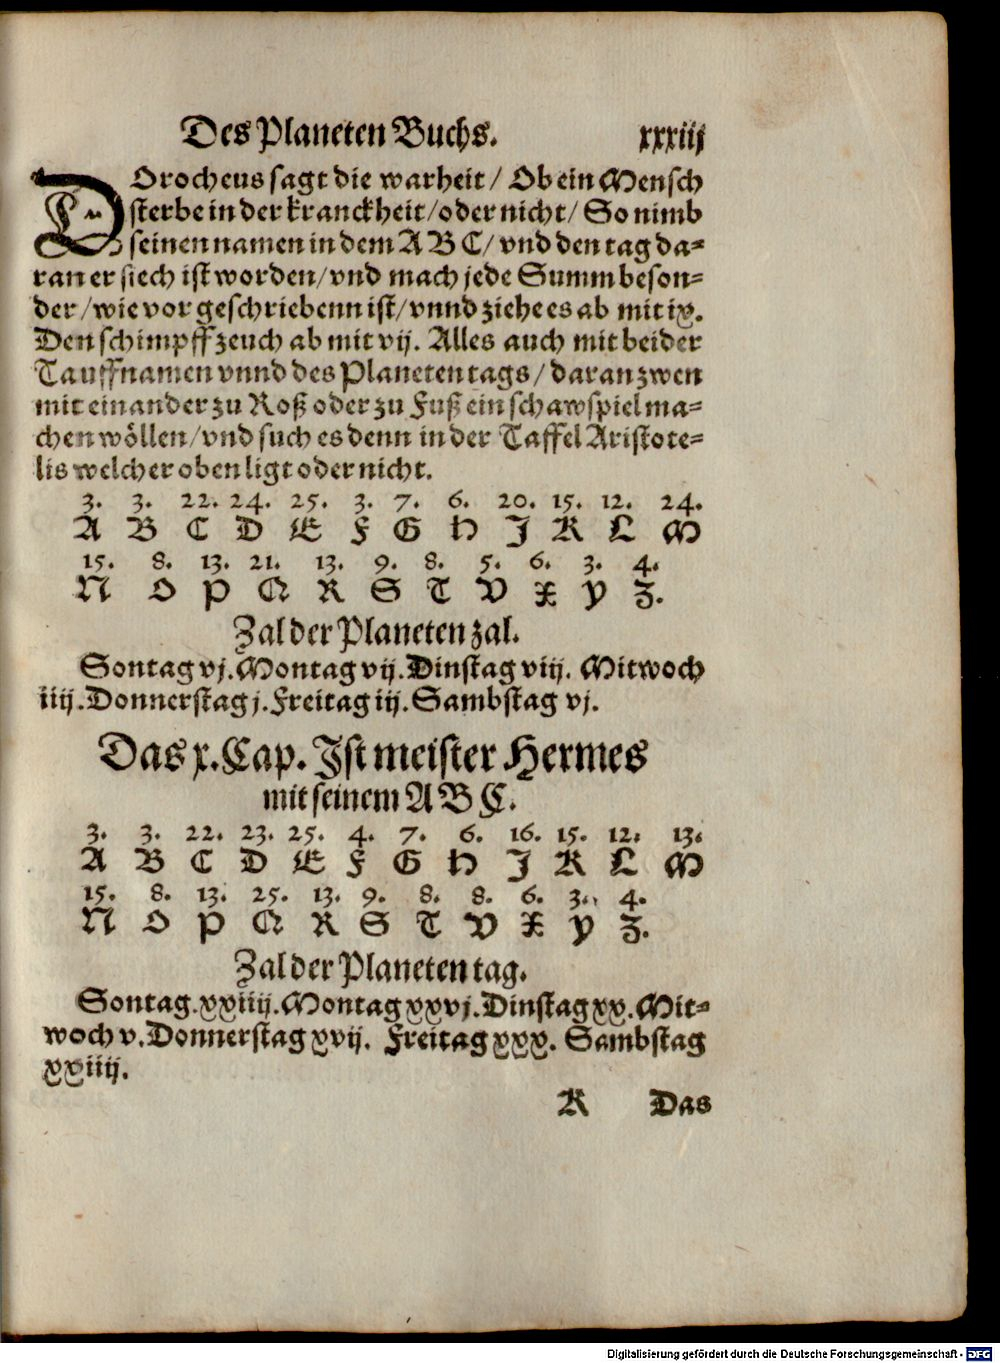 Des Planeten Buchs. xxxiij
DOrocheus sagt die warheit / Ob ein Mensch
sterbe in der kranckheit / oder nicht / So nimb
seinen namen in dem A B C / vnd den tag da=
ran er siech ist worden / vnd mach jede Summ beson=
der / wie vor geschriebenn ist / vnnd ziehe es ab mit ix.
Den schimpff zeuch ab mit vij. Alles auch mit beider
Tauffnamen vnnd des Planeten tags / daran zwen
mit einander zu Roß oder zu Fuß ein schawspiel ma=
chen wöllen / vnd such es denn in der Taffel Aristote=
lis welcher oben ligt oder nicht.
3. 3. 22. 24. 25. 3. 7. 6. 20. 15. 12. 24.
A B C D E F G H J K L M
15. 8. 13. 21. 13. 9. 8. 5. 6. 3. 4.
N O P Q R S T V X Y Z.
Zal der Planeten zal.
Sontag vj. Montag vij. Dinstag viij. Mitwoch
iiij. Donnerstag j. Freitag iij. Sambstag vj.
Das x. Cap. Jst meister Hermes
mit seinem A B C.
3. 3. 22. 23. 25. 4. 7. 6. 16. 15. 12. 13.
A B C D E F G H J K L M
15. 8. 13. 25. 13. 9. 8. 8. 6. 3. 4.
N O P Q R S T V X Y Z.
Zal der Planeten tag.
Sontag. xxiiij. Montag xxvj. Dinstag xx. Mit=
woch v. Donnerstag xvij. Freitag xxx. Sambstag
xxiiij.
K Das
Digitalisierung gefördert durch die Deutsche Forschungsgemeinschaft - DFG